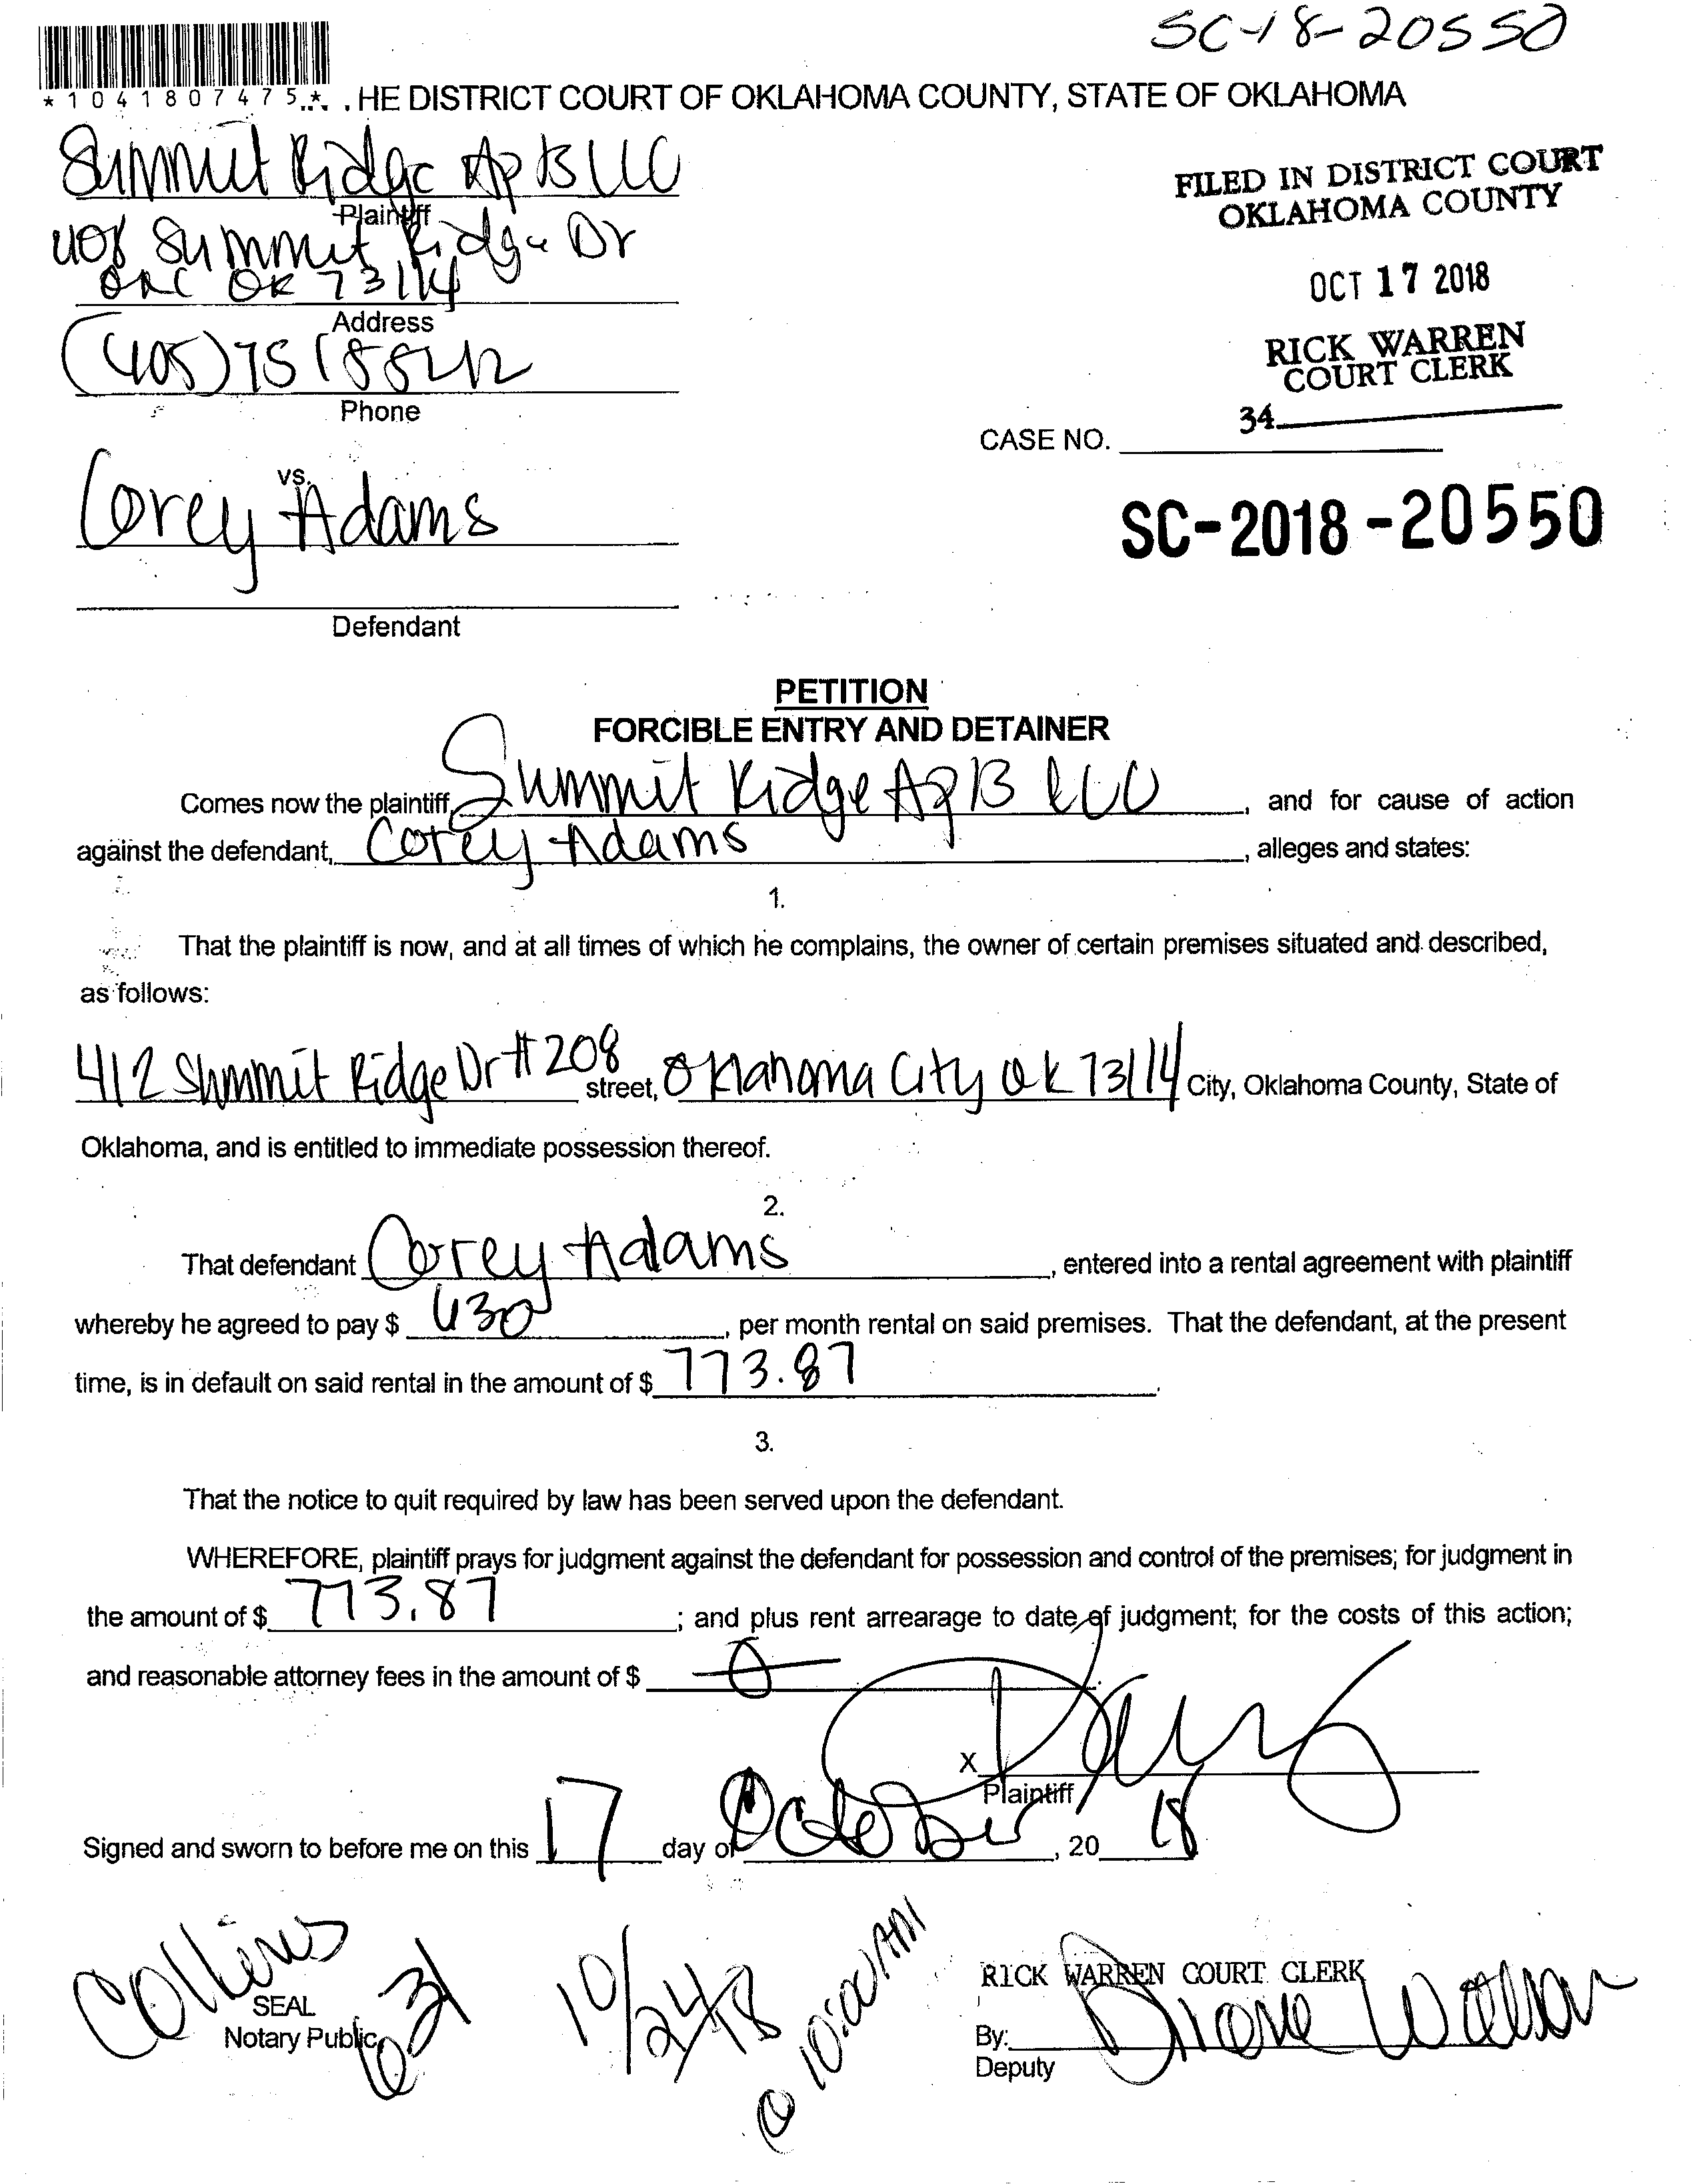 SC-18-20550
*1041807475*
HE DISTRICT COURT OF OKLAHOMA COUNTY, STATE OF OKLAHOMA
Summit Ridge AptS LLC
Plaintiff
408 Summit Ridge Dr
OKC OK 73114
Address
(405)7518842
Phone
FILED IN DISTRICT COURT
OKLAHOMA COUNTY
OCT 17 2018
RICK WARREN
COURT CLERK
34
CASE NO.
SC-2018-20550
vs.
Corey Adams
Defendant
PETITION
FORCIBLE ENTRY AND DETAINER
Comes now the plaintiff, Summit Ridge AptS LLC, and for cause of action
against the defendant, Corey Adams, alleges and states:
1.
That the plaintiff is now, and at all times of which he complains, the owner of certain premises situated and described,
as follows:
412 Summit Ridge Dr #208 street, Oklahoma City OK 73114 City, Oklahoma County, State of
Oklahoma, and is entitled to immediate possession thereof.
2.
That defendant Corey Adams, entered into a rental agreement with plaintiff
whereby he agreed to pay $ 630, per month rental on said premises. That the defendant, at the present
time, is in default on said rental in the amount of $ 773.87.
3.
That the notice to quit required by law has been served upon the defendant.
WHEREFORE, plaintiff prays for judgment against the defendant for possession and control of the premises; for judgment in
the amount of $ 773.87; and plus rent arrearage to date of judgment; for the costs of this action;
and reasonable attorney fees in the amount of $ 0.
X
Plaintiff
Signed and sworn to before me on this 17 day of October, 20 18
Collins
631
SEAL
Notary Public
10/24/18
@ 10:00 AM
RICK WARREN COURT CLERK
By: Diane
Deputy